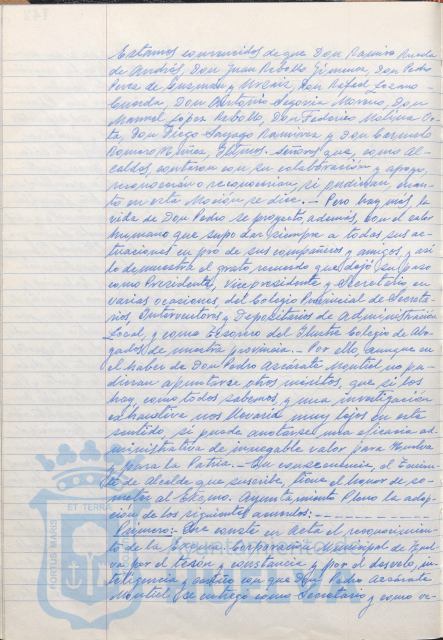 Estamos convencidos de que Don Ramiro Rueda
de Andrés, Don Juan Rebollo Jiménez, Don Pedro
Pérez de Guzmán y Urzaiz, Don Rafael Lozano
Cuerda, Don Antonio Segovia Moreno, Don
Manuel López Rebollo, Don Federico Molina Or-
ta, Don Diego Sayago Ramírez y Don Carmelo
Romero Núñez, Iltmos. Señores que, como Al-
caldes, contaron con su colaboración y apoyo,
reconocerán o reconocerían, si pudieran, cuan-
to en esta Moción se dice.- Pero hay más, la
vida de Don Pedro se proyectó, además, con el calor
humano que supo dar siempre a todas sus ac-
tuaciones en pro de sus compañeros y amigos, y así
lo demuestra el grato recuerdo que dejó su paso
como Presidente, Vicepresidente y Secretario, en
varias ocasiones, del Colegio Provincial de Secreta-
rios, Interventores y Depositarios de Administración
Local, y como Tesorero del Ilustre Colegio de Abo-
gados de nuestra provincia.- Por ello, aunque en
el haber de Don Pedro Azcárate Montiel no pu-
dieran apuntarse otros méritos, que sí los
hay, como todos sabemos, y una investigación
exhaustiva nos llevaría muy lejos en este
sentido, sí puede anotarse una eficacia ad-
ministrativa de innegable valor para Huelva
y para la Patria.- En consecuencia, el Tenien-
te de Alcalde que suscribe, tiene el honor de so-
meter al Excmo. Ayuntamiento Pleno la adop-
ción de los siguientes acuerdos:-----
Primero:- Que conste en Acta el reconocimien-
to de la Excma. Corporación Municipal de Huel-
va por el tesón y constancia y por el desvelo, in-
teligencia y acierto con que Don Pedro Azcárate
Montiel se entregó como Secretario y como ve-
PORTUS MARIS
ET TERRAE